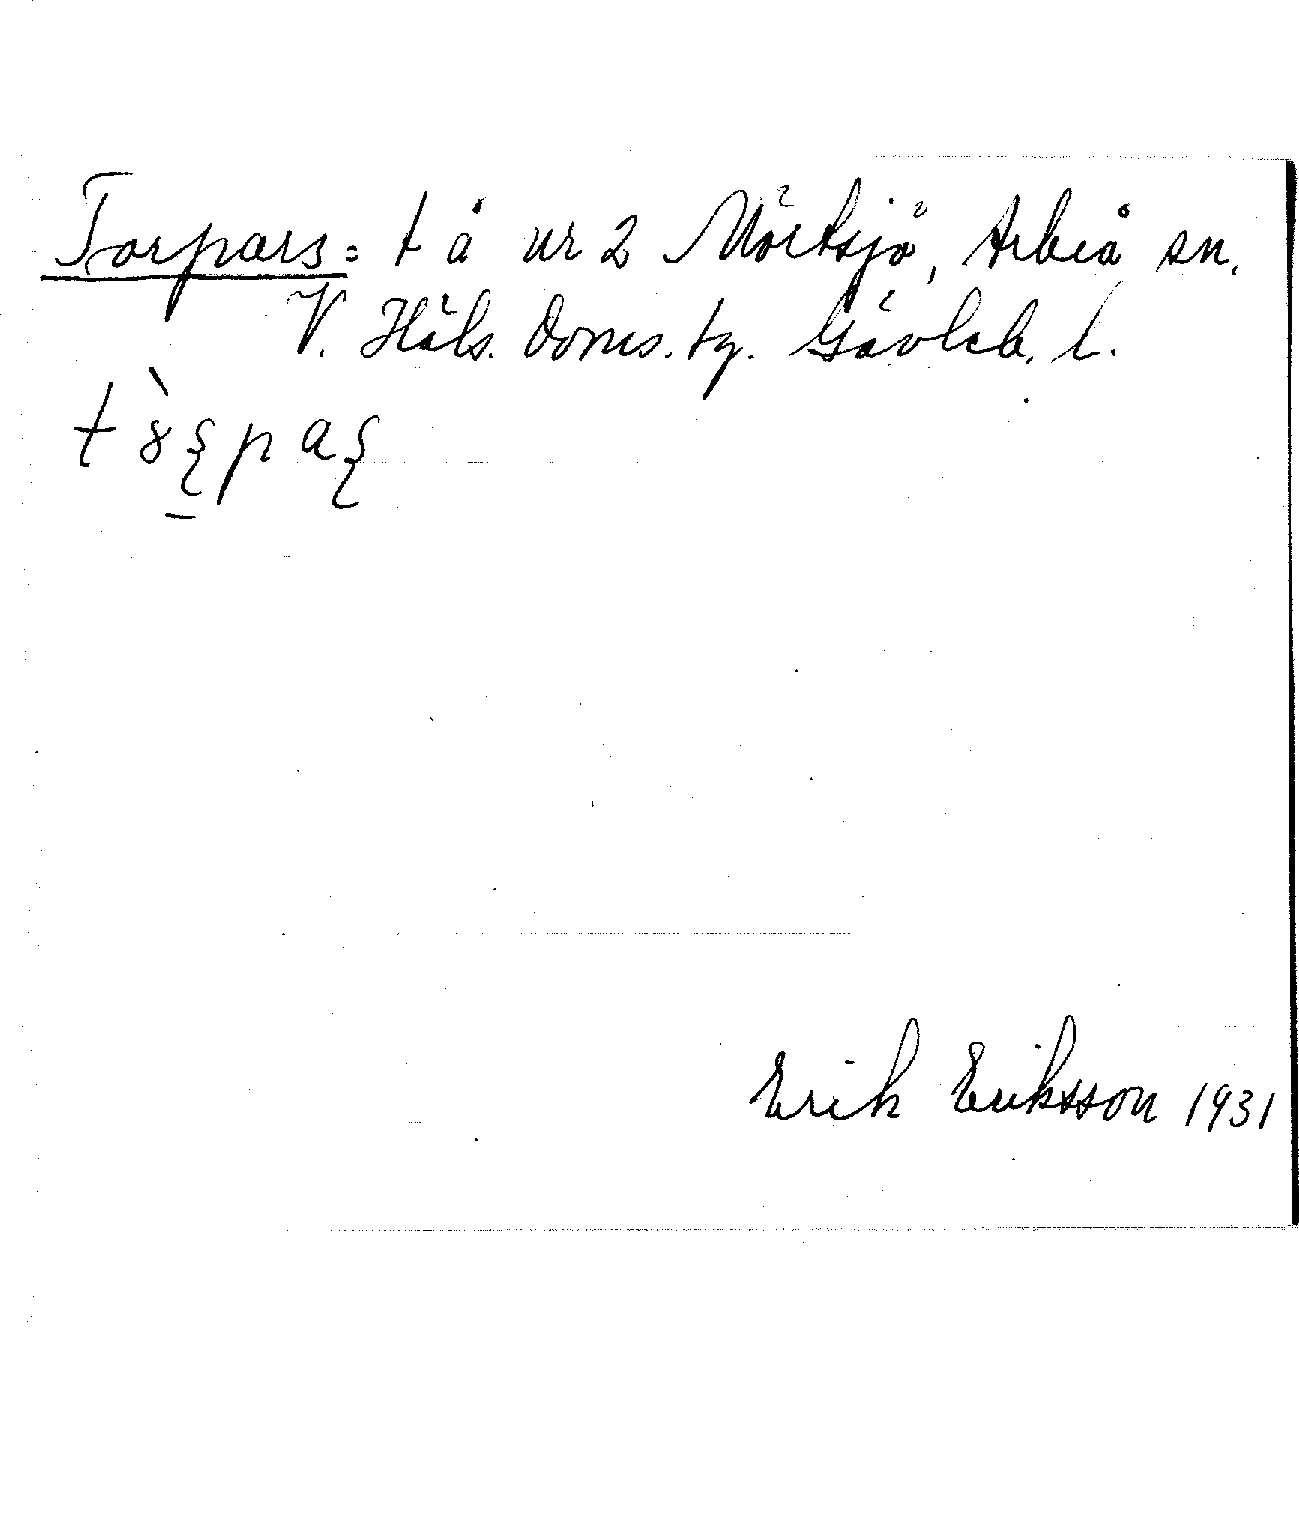 Torpars = t å nr 2 Mörtsjö, Arbrå sn.
V. Häls. Doms. tg. Gävleb. l.
Erik Eriksson 1931